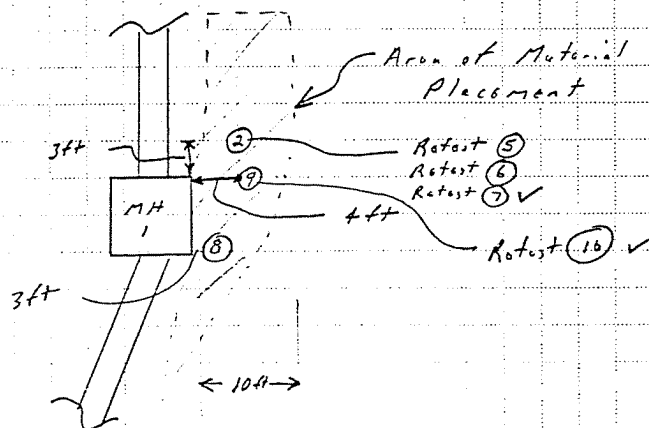 Area of Material
Placement
3ft
2
Retest 5
Retest 6
Retest 7 ✓
9
4ft
MH
1
8
Retest 10 ✓
3ft
10ft